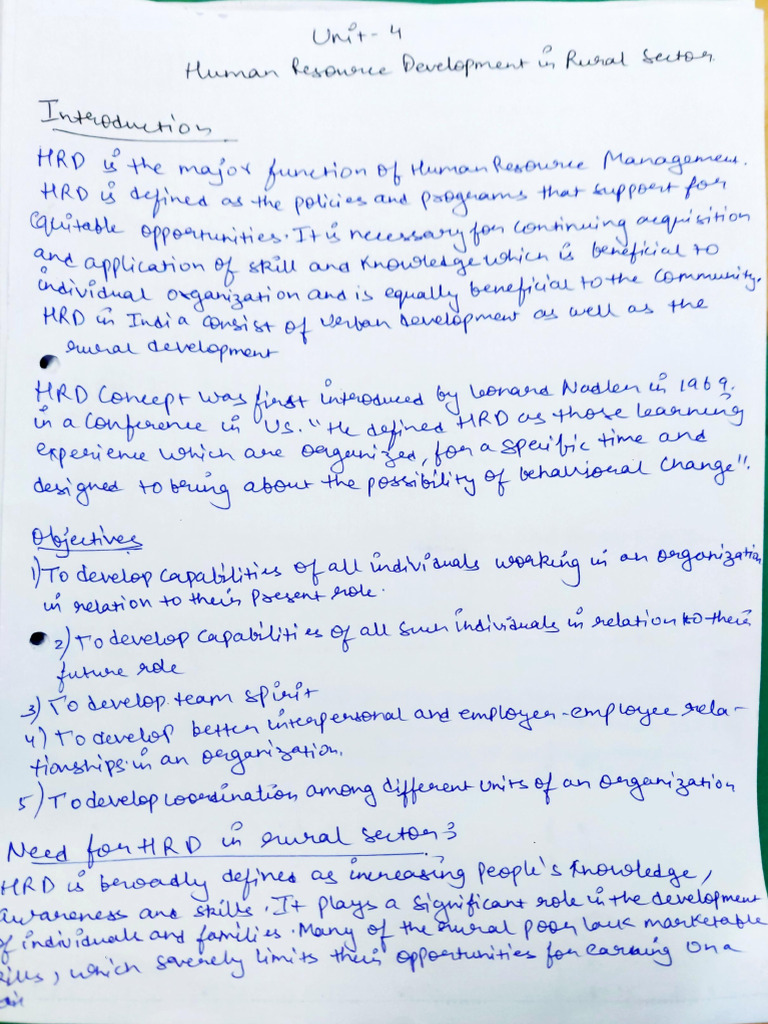 Unit-4
Human Resource Development in Rural Sector
Introduction
HRD is the major function of Human Resource Management.
HRD is defined as the policies and programs that support for
equitable opportunities. It is necessary for continuing acquisition
and application of skill and knowledge which is beneficial to
individual organization and is equally beneficial to the community.
HRD in India consist of urban development as well as the
rural development
HRD Concept was first introduced by Leonard Nadler in 1969.
in a Conference in US. "He defined HRD as those learning
experience which are organized, for a specific time and
designed to bring about the possibility of behavioral change".
Objectives
1) To develop capabilities of all individuals working in an organization
in relation to their present role.
2) To develop capabilities of all such individuals in relation to their
future role
3) To develop team spirit
4) To develop better interpersonal and employer-employee rela-
tionships in an organization.
5) To develop coordination among different units of an organization
Need for HRD in rural sector:
HRD is broadly defined as increasing people's knowledge,
awareness and skills. It plays a significant role in the development
of individuals and families. Many of the rural poor lack marketable
skills, which severely limits their opportunities for earning on a